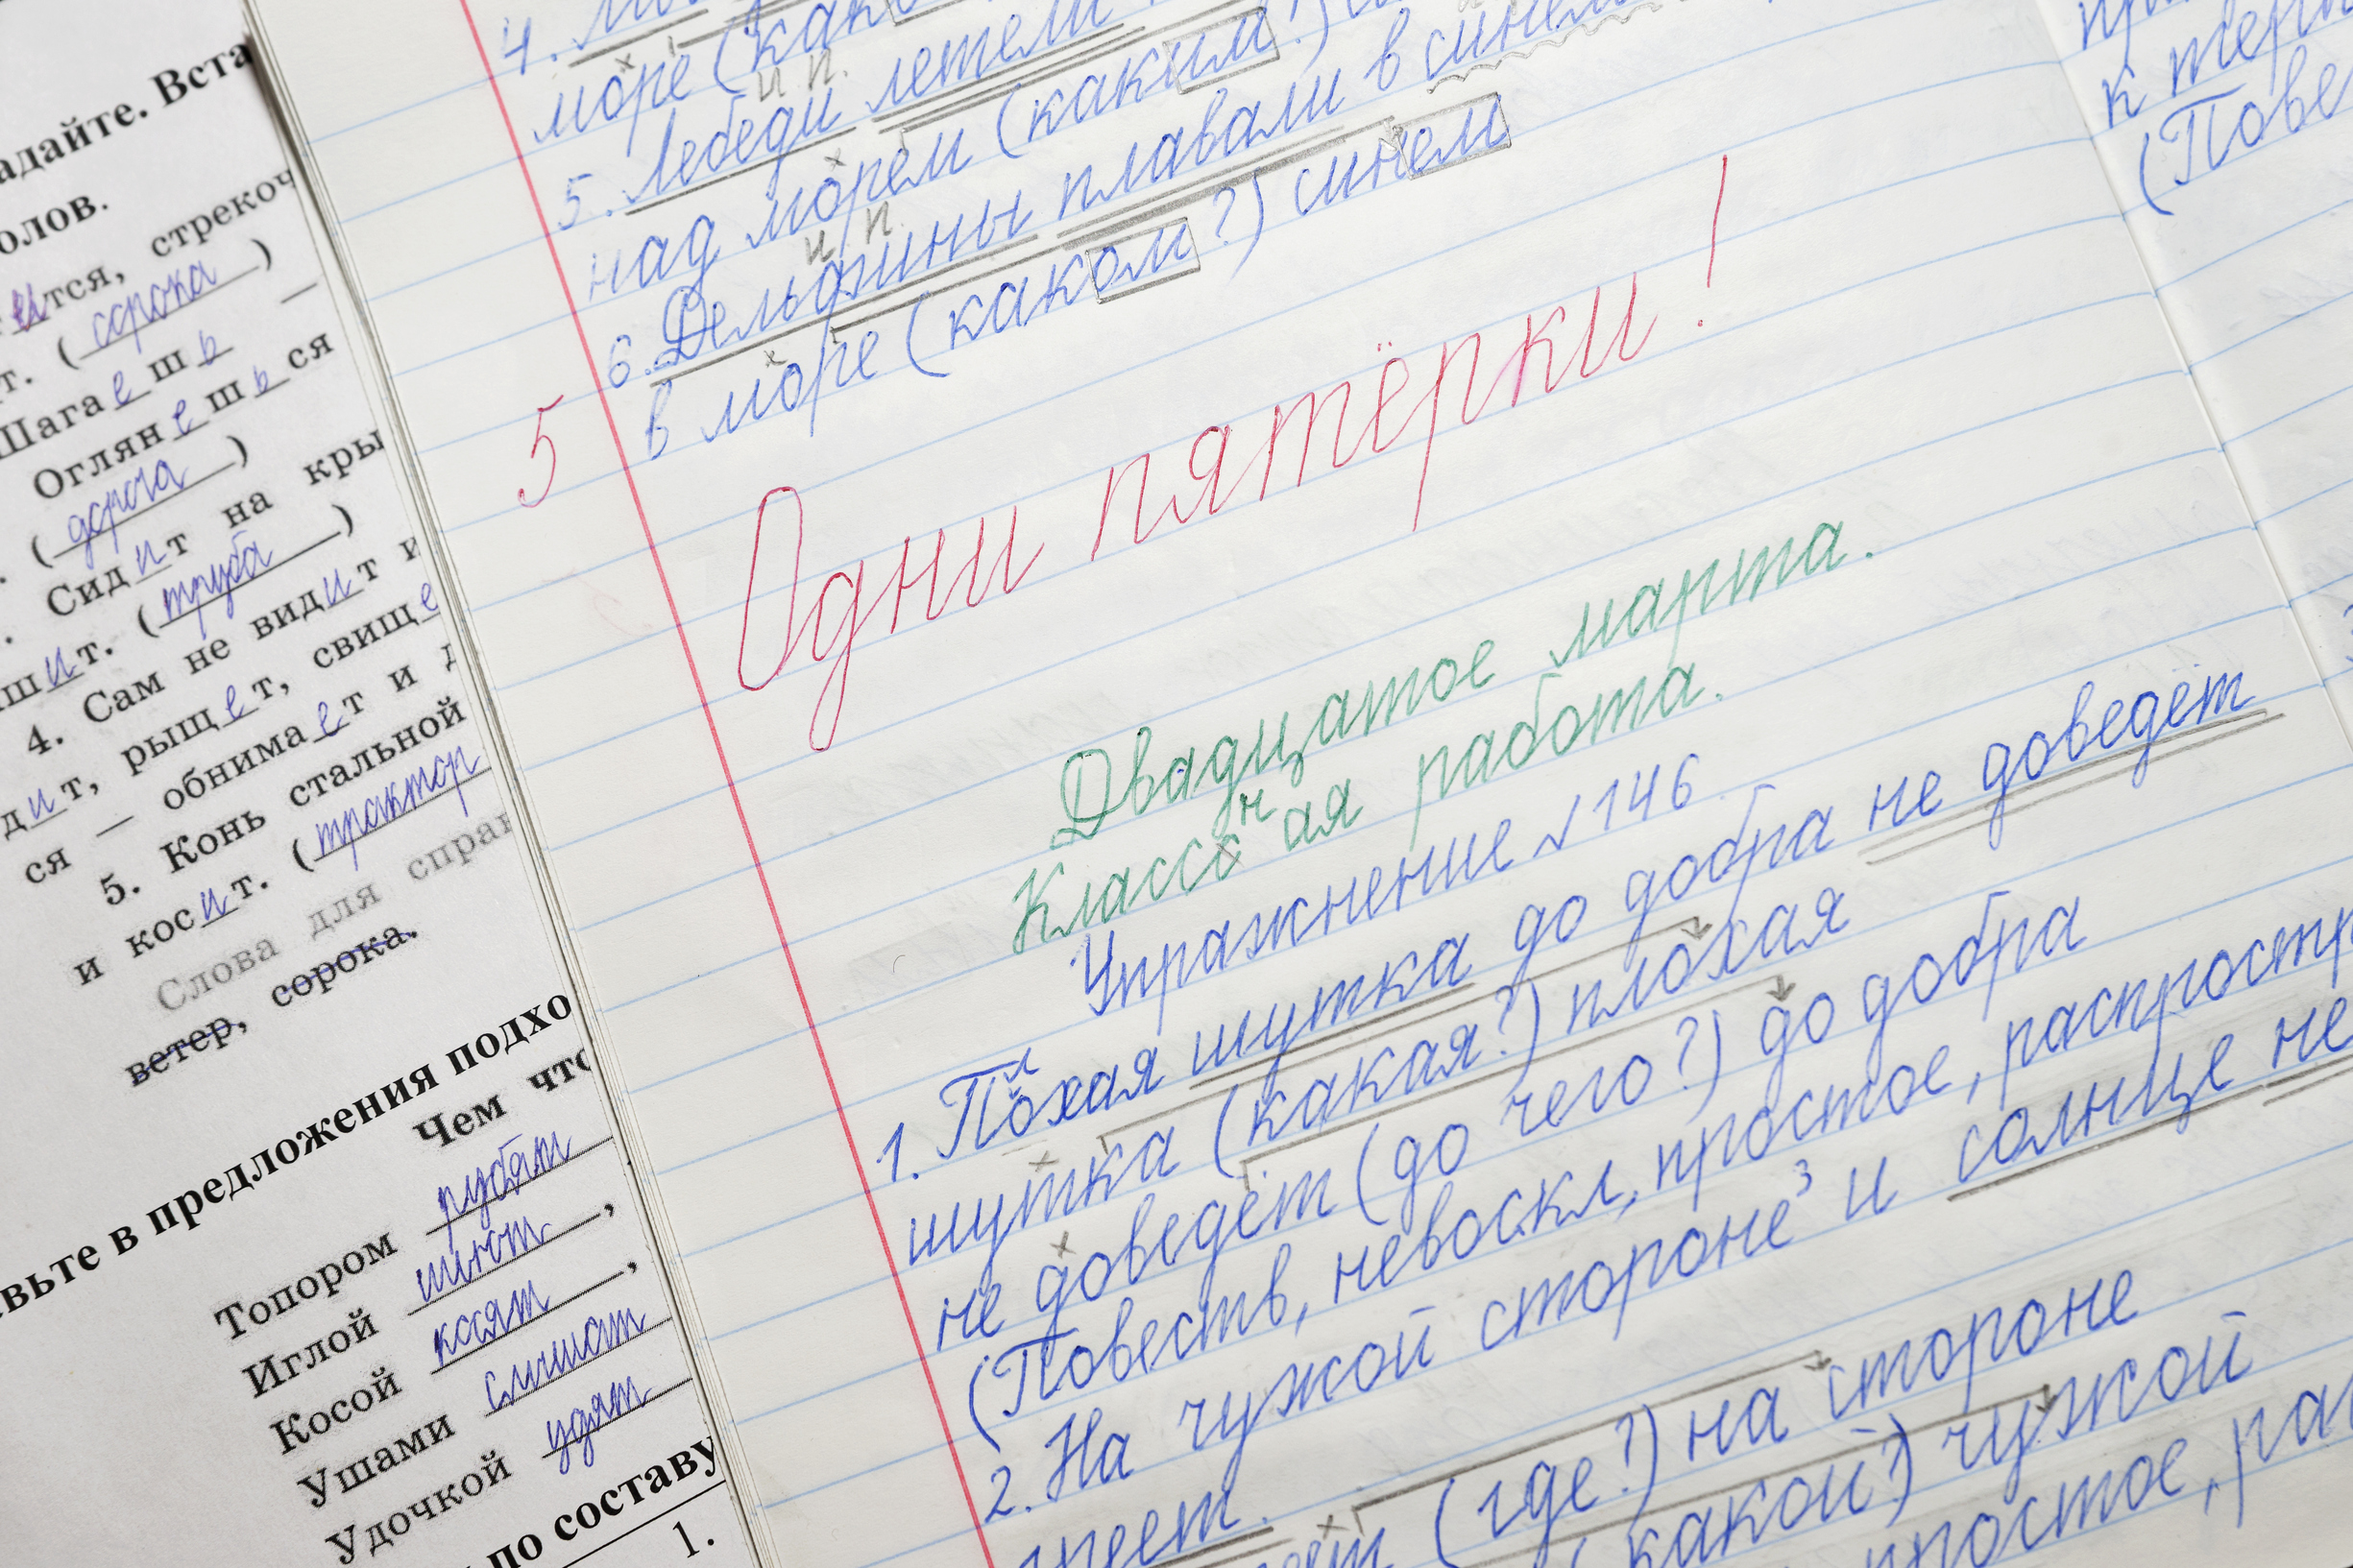 адайте. Вста
олов.
ится, стрекоч
т. (сорока)
Шагаешь —
Оглянешься
(дорога)
Сидит на кры
шит. (труба)
4. Сам не видит и
дит, рыщет, свище
ся — обнимает и д
5. Конь стальной
и косит. (трактор
Слова для справ
ветер, сорока.
вьте в предложения подхо
Чем что
Топором рубят
Иглой шьют,
Косой косят,
Ушами слышат
Удочкой удят
по составу
1.
4.
море (како
и п.
5. Лебеди летели
над морем (каким?)
и п.
6. Дельфины плавали в синем
в море (каком?) синем
5
Одни пятёрки!
Двадцатое марта.
Классная работа.
Упражнение №146
1. Плохая шутка до добра не доведёт
шутка (какая?) плохая
не доведёт (до чего?) до добра
(Повеств, невоскл, простое, распростр
2. На чужой стороне³ и солнце не
греет.
(где?) на стороне
какой?) чужой
простое, ра
к
(Пове